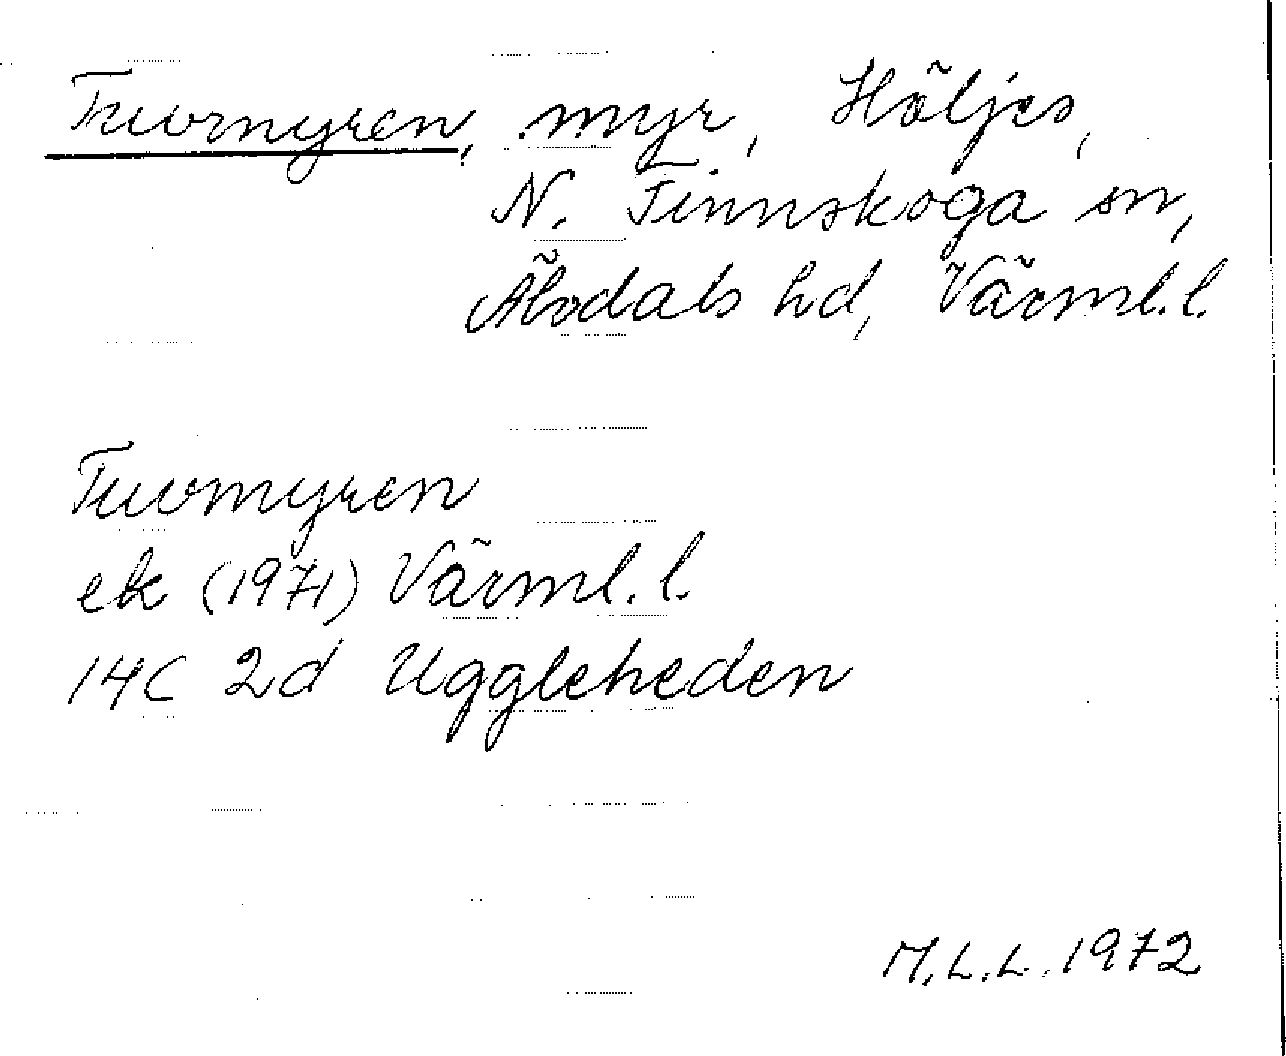 Tuvmyren, myr, Höljes,
N. Finnskoga sn,
Älvdals hd, Värml.l.
Tuvmyren
ek (1971) Värml.l.
14C 2d Uggleheden
M.L.L. 1972